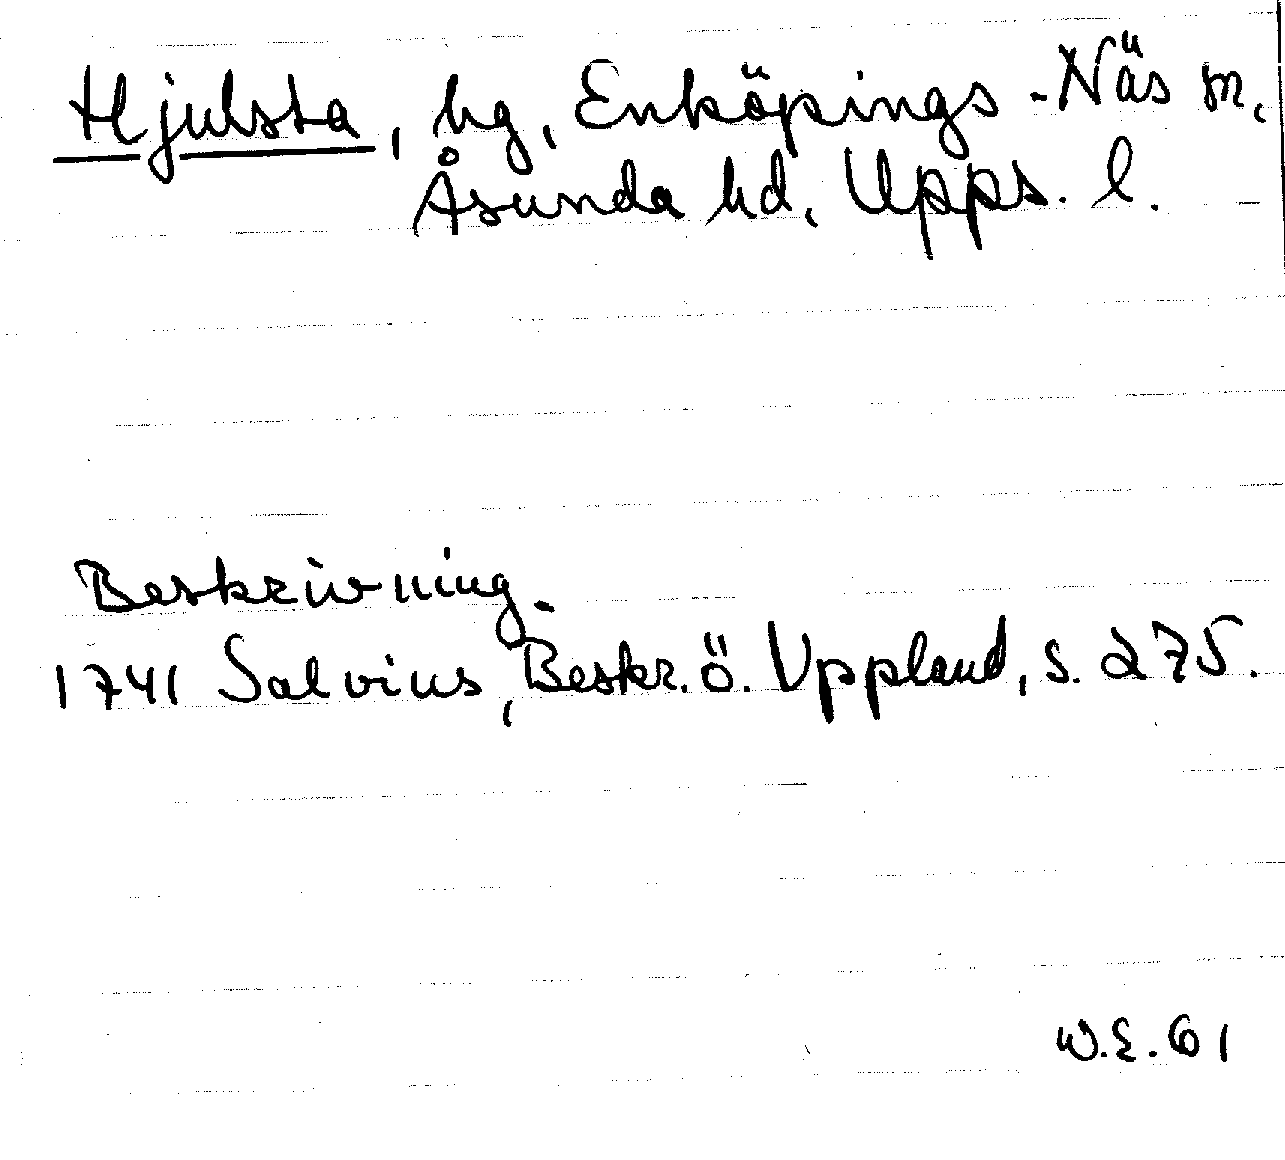 Hjulsta, hg, Enköpings-Näs sn,
Åsunda hd, Upps. l.
Beskrivning.
1741 Salvius, Beskr. ö. Uppland, s. 275.
W.E. 61